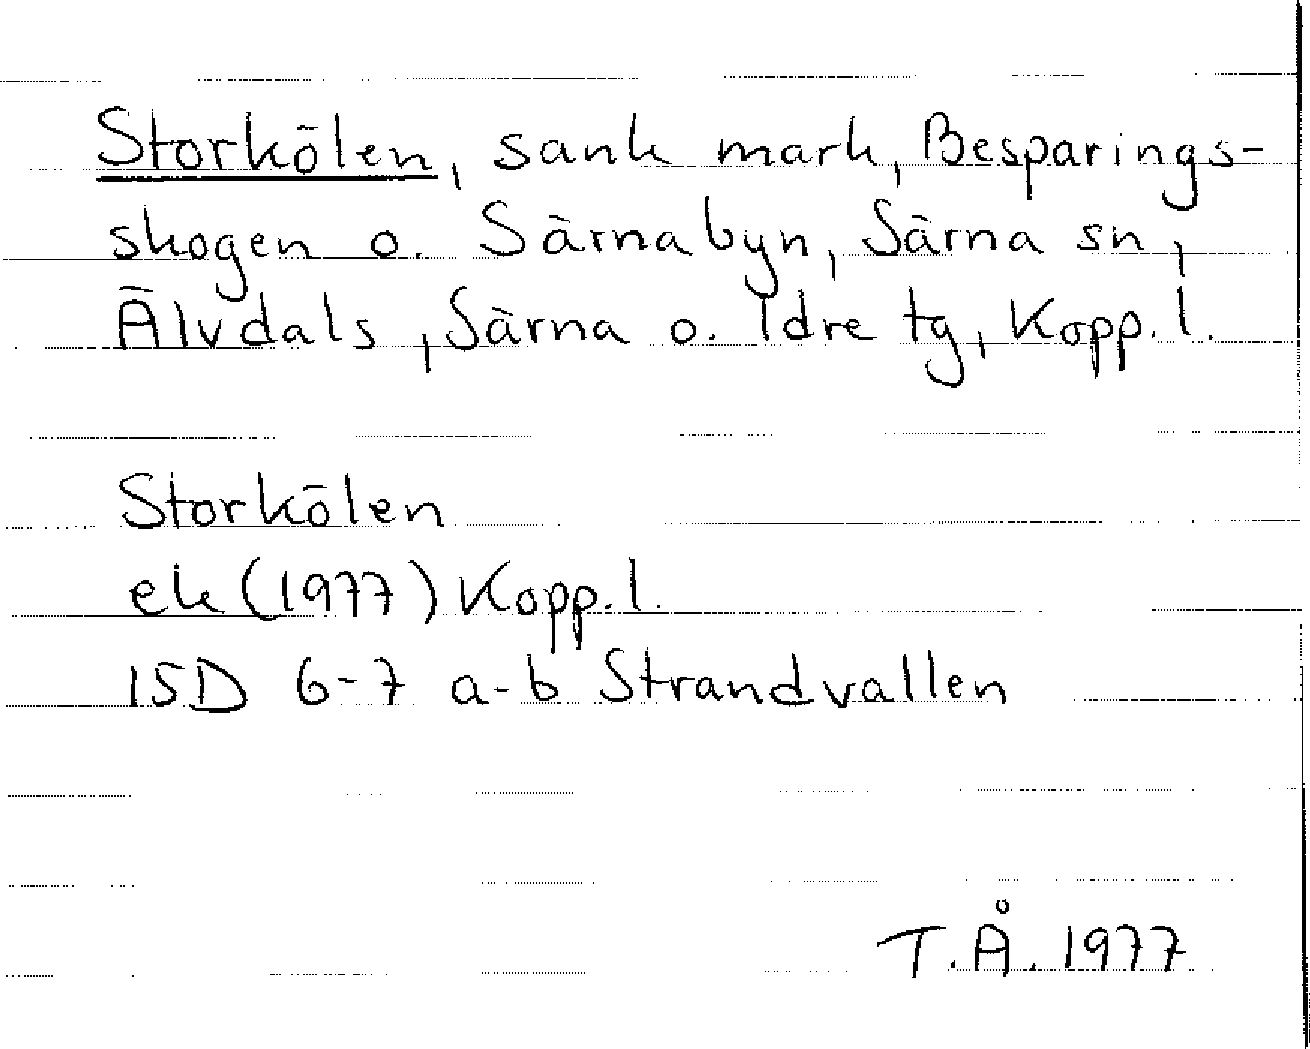 Storkölen, sank mark, Besparings-
skogen o. Särnabyn, Särna sn,
Älvdals, Särna o. Idre tg, Kopp. l.
Storkölen
ek (1977) Kopp. l.
15D 6-7 a-b Strandvallen
T.Å. 1977